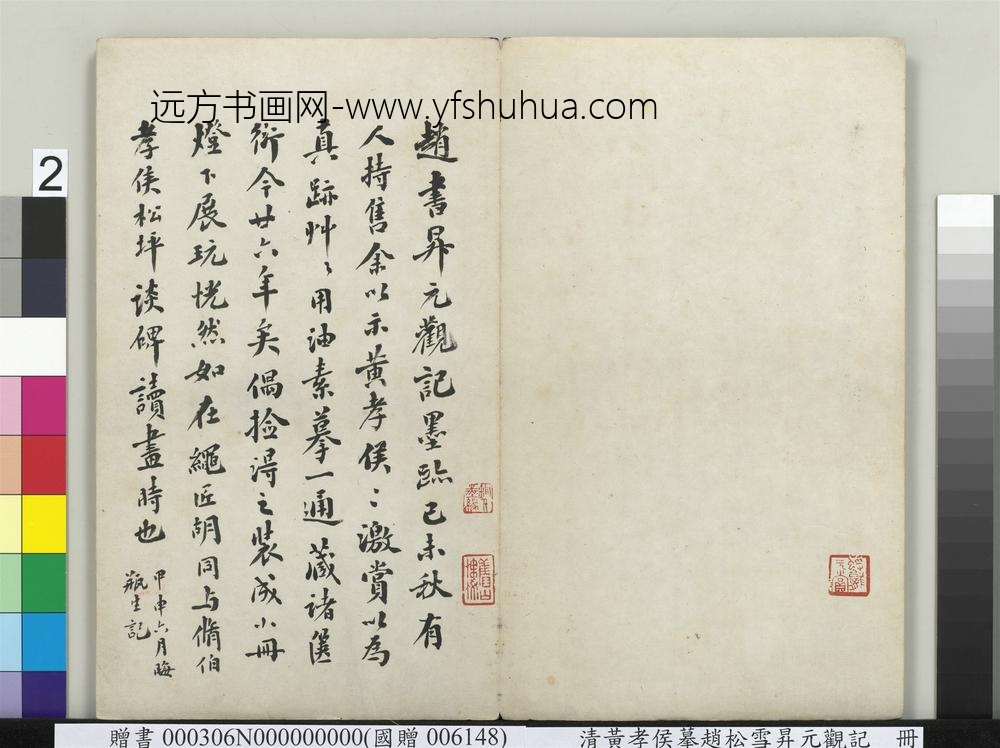 远方书画网-www.yfshuhua.com
趙書昇元觀記墨跡己未秋有
人持售余以示黃孝侯〻激賞以為
真跡艸〻用油素摹一通藏諸篋
衍今廿六年矣偶撿得之裝成小冊
燈下展玩恍然如在繩匠胡同与脩伯
孝侯松坪談碑讀畫時也
甲申六月晦
瓶生記
2
贈書 000306N000000000(國贈 006148)
清黃孝侯摹趙松雪昇元觀記 冊